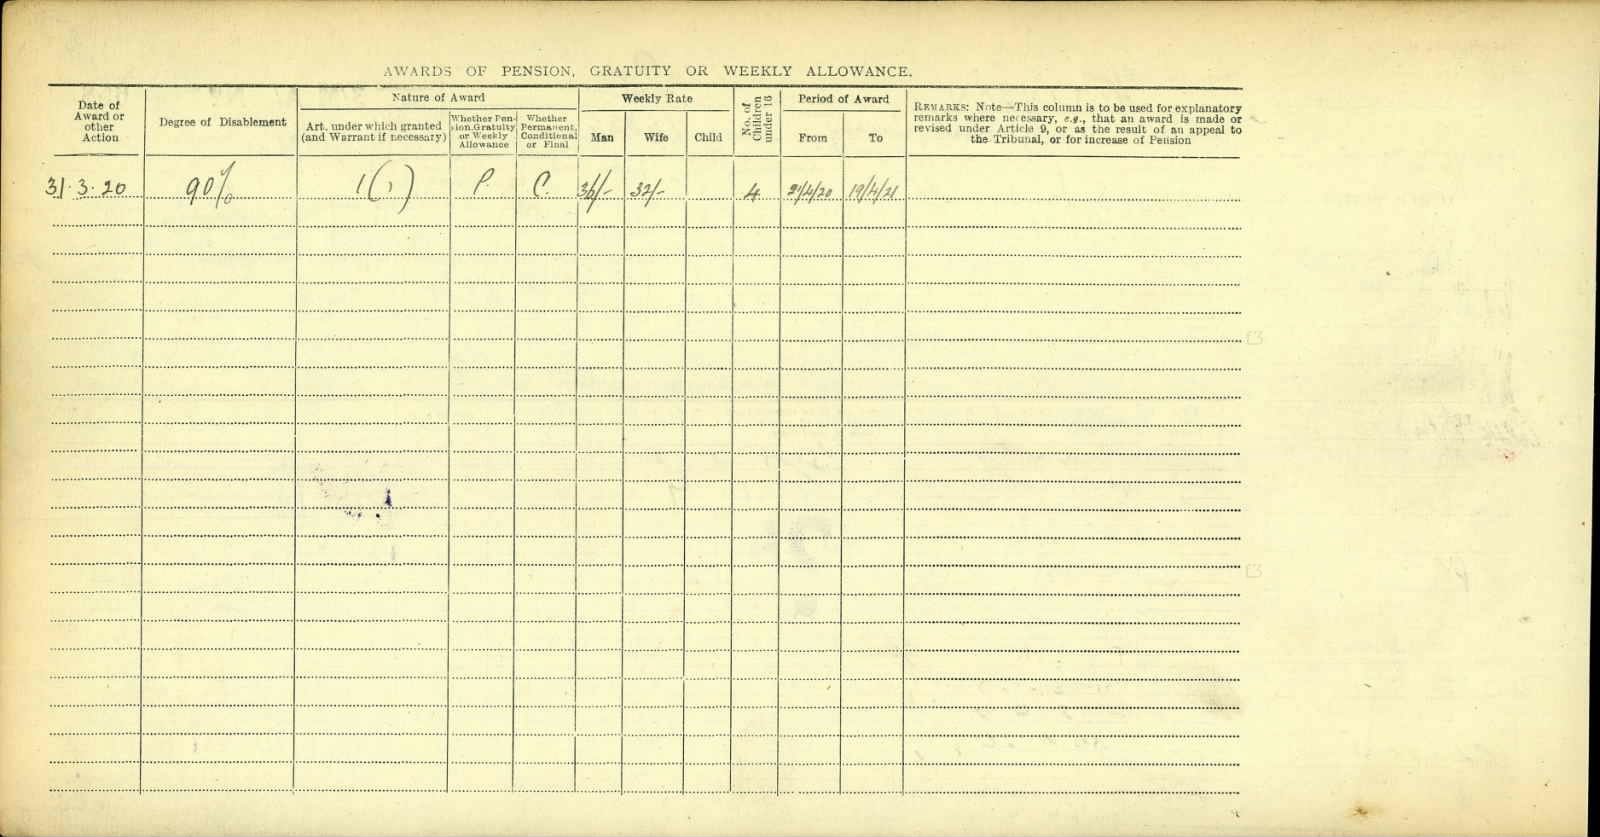 AWARDS OF PENSION, GRATUITY OR WEEKLY ALLOWANCE.
Date of
Award or
other
Action
Degree of Disablement
Nature of Award
Art. under which granted
(and Warrant if necessary)
Whether Pen-
sion, Gratuity
or Weekly
Allowance
Whether
Permanent,
Conditional
or Final
Weekly Rate
Man
Wife
Child
No. of
Children
under 16
Period of Award
From
To
REMARKS: Note—This column is to be used for explanatory
remarks where necessary, e.g., that an award is made or
revised under Article 9, or as the result of an appeal to
the Tribunal, or for increase of Pension
31.3.20 90% 1(1) P. C. 36/- 32/- 4 21/4/20 19/4/21